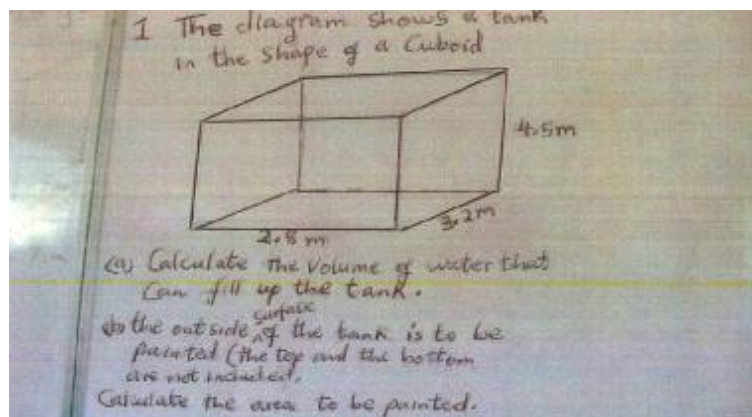 1 The diagram shows a tank
in the shape of a Cuboid
4.5m
3.2m
2.8 m
(a) Calculate the volume of water that
can fill up the tank.
(b) the outside surface of the tank is to be
painted (the top and the bottom
are not included.
Calculate the area to be painted.